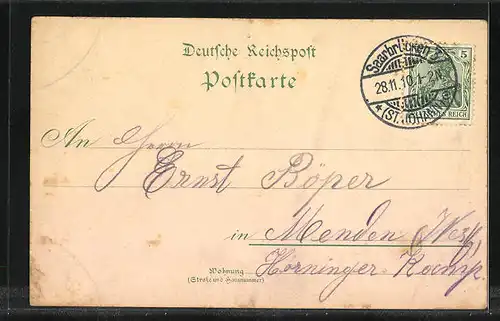 Deutsche Reichspost
Postkarte
Saarbrücken 3
28.11.10 1-2N
* (ST. JOHANN)
5
REICH
An Herrn
Ernst Böper
in Menden Westf.
Wohnung
(Straße und Hausnummer)
Horninger Kamp.